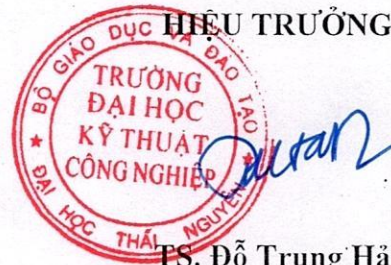 HIỆU TRƯỞNG
BỘ GIÁO DỤC VÀ ĐÀO TẠO
TRƯỜNG
ĐẠI HỌC
KỸ THUẬT
CÔNG NGHIỆP
ĐẠI HỌC THÁI NGUYÊN
TS. Đỗ Trung Hả